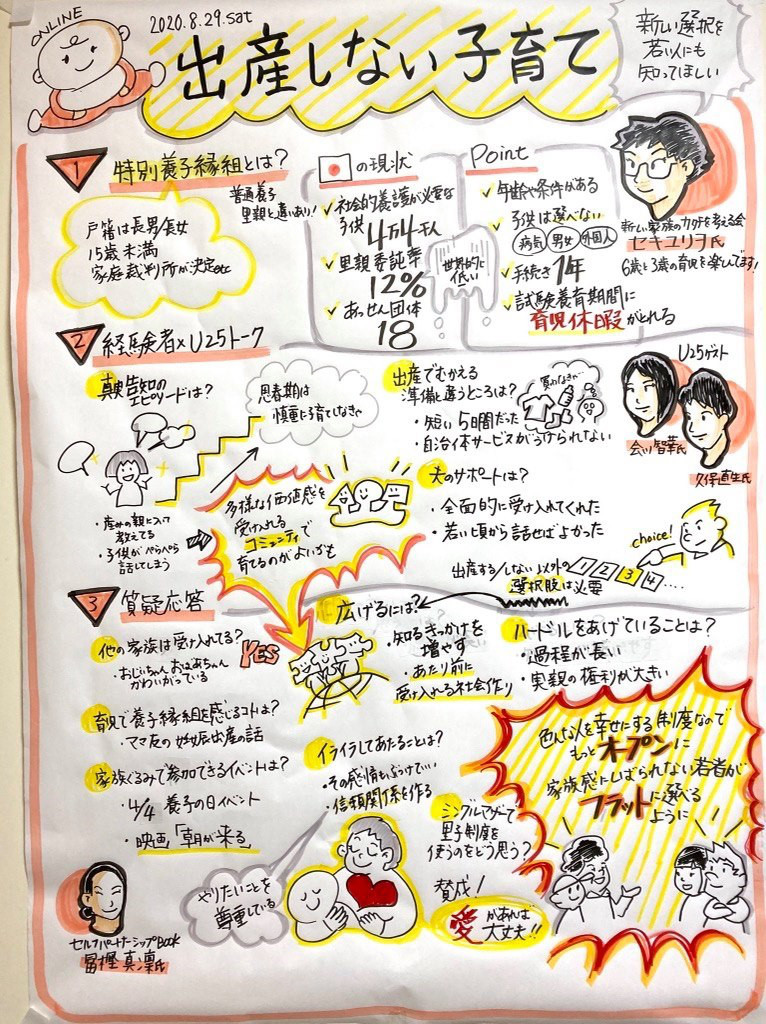 ONLINE
2020.8.29.sat
出産しない子育て
新しい選択を
若い人にも
知ってほしい
1 特別養子縁組とは?
普通養子
里親と違いあり!
戸籍は長男/長女
15歳未満
家庭裁判所が決定etc
の現状
✓社会的養護が必要な
子供 4万4千人
✓里親委託率
12%
✓あっせん団体
18
世界的に
低い
Point
✓年齢や条件がある
✓子供は選べない
病気 男女 外国人
✓手続き1年
✓試験養育期間に
育児休暇がとれる
新しい家族のカタチを考える会
セキユリヲ氏
6歳と3歳の育児を楽しんでます!
2 経験者×U25トーク
真実告知の
エピソードは?
思春期は
慎重に子育てしなきゃ
・産みの親について
教えてる
・子供がぺらぺら
話してしまう
多様な価値感を
受け入れる
コミュニティで
育てるのがよいかも
出産でむかえる
準備と違うところは?
・短い5日間だった
・自治体サービスがうけられない
買わなきゃ
夫のサポートは?
・全面的に受け入れてくれた
・若い頃から話せばよかった
U25ゲスト
会川智華氏
久保直生氏
choice!
出産する/しない以外の
選択肢は必要
1 2 3 4 ....
3 質疑応答
他の家族は受け入れてる?
YES
・おじいちゃんおばあちゃん
かわいがっている
育児で養子縁組を感じるコトは?
・ママ友の妊娠出産の話
家族ぐるみで参加できるイベントは?
・4/4 養子の日イベント
・映画「朝が来る」
広げるには?
・知るきっかけを
増やす
・あたり前に
受け入れる社会作り
ハードルをあげていることは?
・過程が長い
・実親の権利が大きい
イライラしてあたることは?
・その感情もぶつけていい
・信頼関係を作る
シングルマザーで
里子制度を
使うのをどう思う?
賛成!
愛があれば
大丈夫!!
色んな人を幸せにする制度なので
もっとオープンに
家族感にしばられない若者が
フラットに選べる
ように
やりたいことを
尊重している
セルフパートナーシップBook
冨樫真凜氏